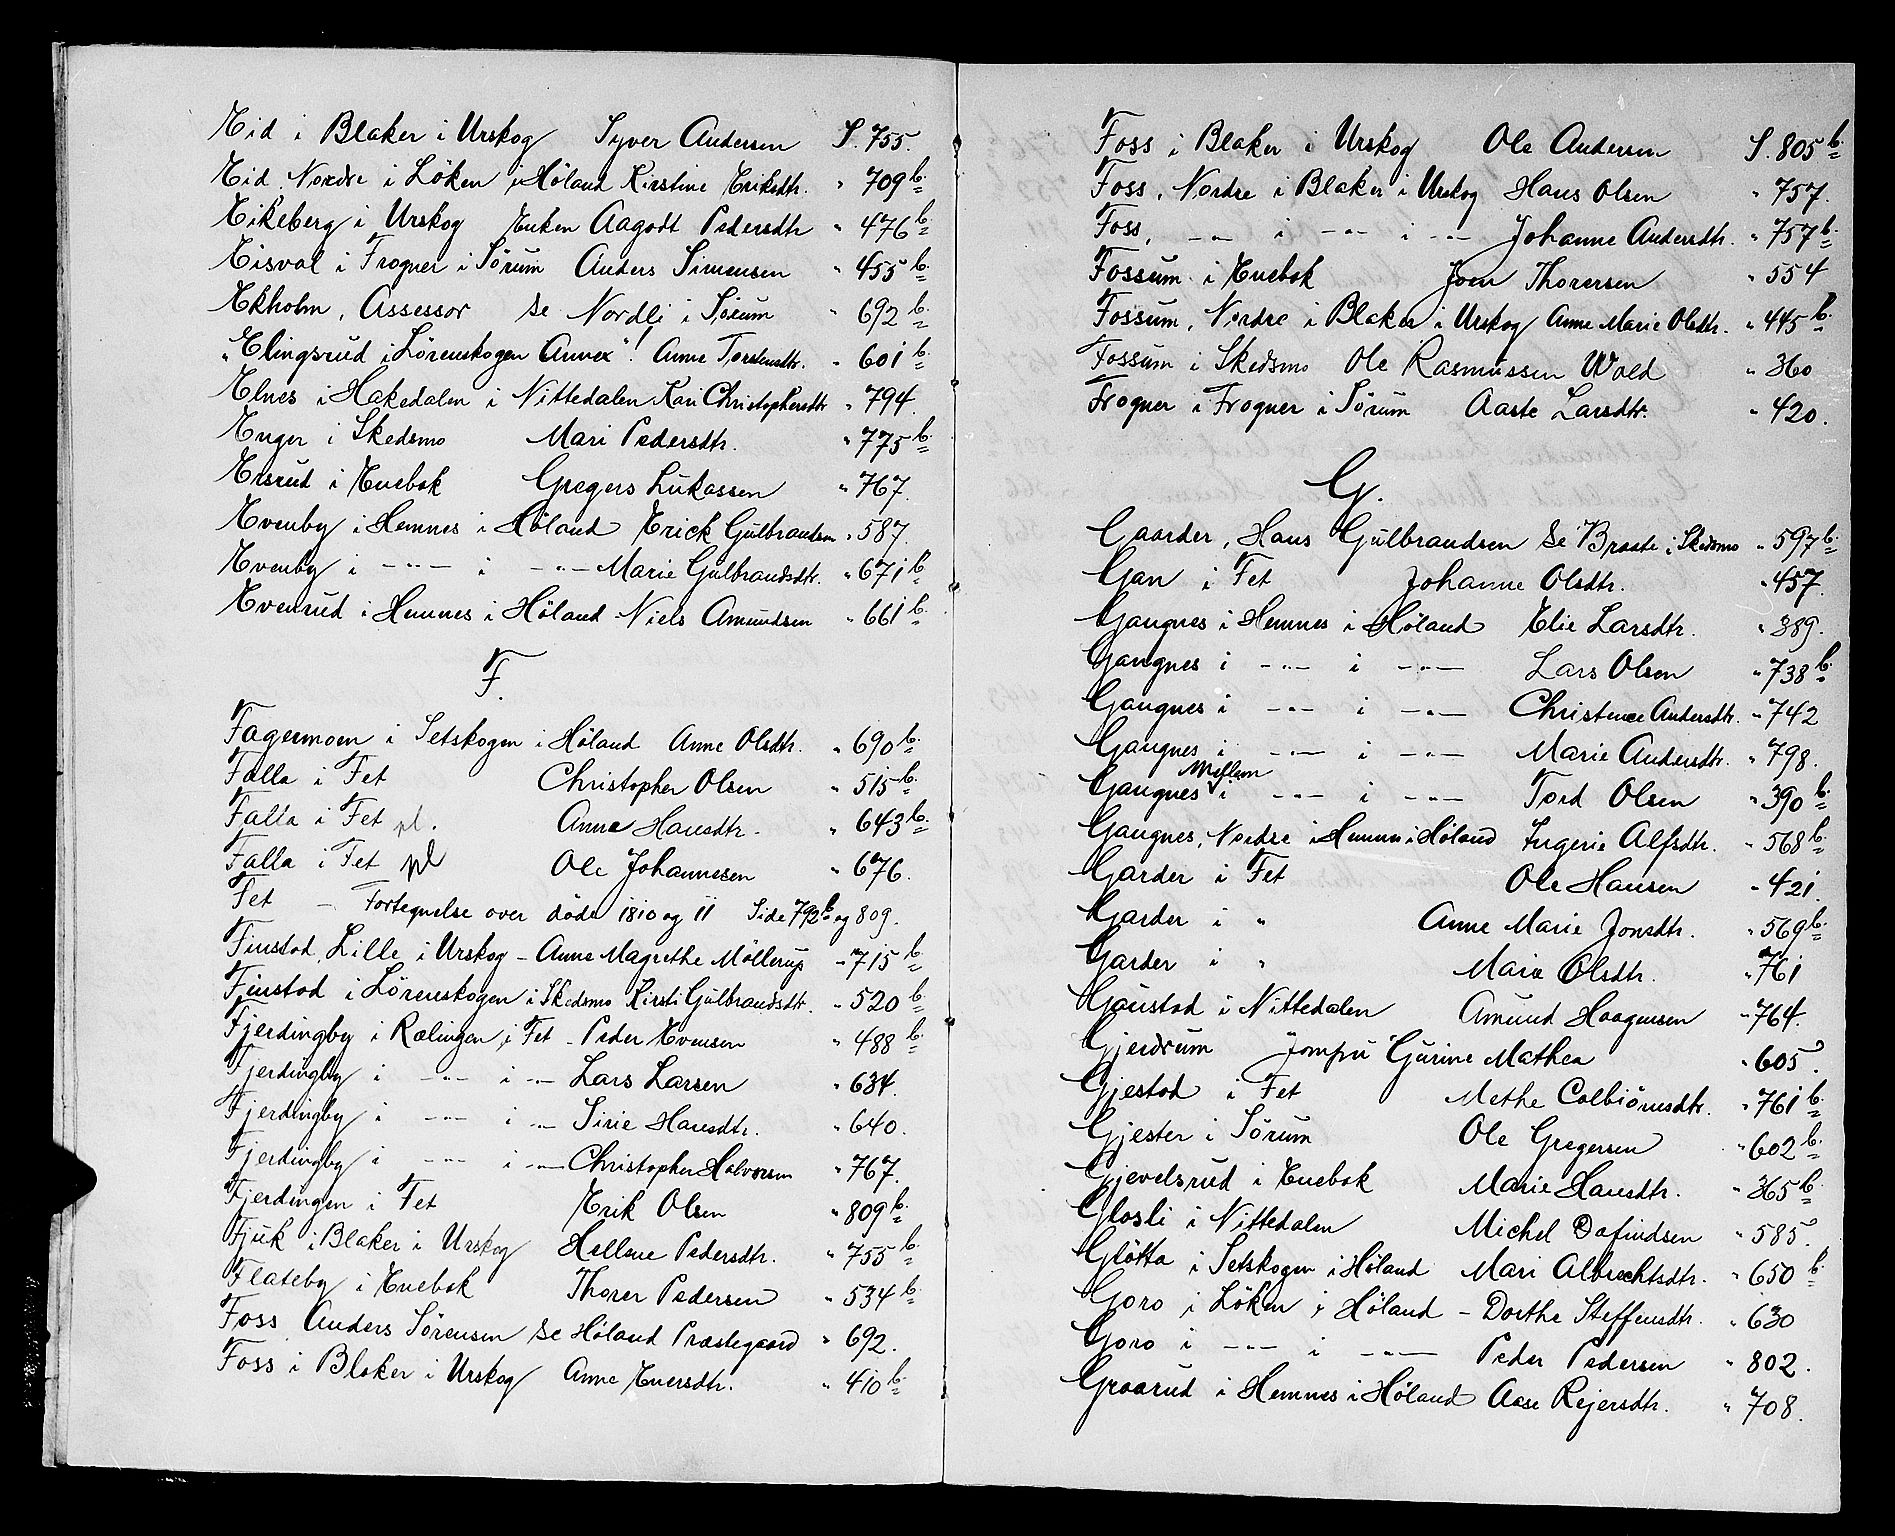 Eid i Blaker i Urskog Syver Andersen S. 755.
Eid Nordre i Löken i Höland Kirstine Eriksdtr. " 709 b.
Eikeberg i Urskog Enken Aagodt Pedersdtr " 476 b.
Eisval i Frogner i Sörum Anders Simensen " 455 b.
Ekholm, Assessor se Nordli i Sörum " 692 b.
"Elingsrud i Lörenskogen Annex"! Anne Torstensdtr. " 601 b.
Elnes i Hakedalen i Nittedalen Kari Christophersdtr " 794.
Enger i Skedsmo Mari Pedersdtr. " 775 b.
Ersrud i Enebok Gregers Lukassen " 767.
Evenby i Hemnes i Höland Erick Gulbrandsen " 587.
Evenby i -"- i -"- Marie Gulbrandsdtr. " 671 b.
Evenrud i Hemnes i Höland Niels Amundsen " 661 b.
F.
Fagermoen i Setskogen i Höland Anne Olsdtr. " 690 b.
Falla i Fet Christopher Olsen " 515 b.
Falla i Fet pl. Anne Hansdtr. " 643 b.
Falla i Fet pl Ole Johannesen " 676.
Fet - Fortegnelse over döde 1810 og 11 Side 792 b og 809.
Finstad, Lille i Urskog - Anne Magrethe Möllerup " 715 b.
Finstad i Lörenskogen i Skedsmo Kirsti Gulbrandsdtr. " 520 b.
Fjerdingby i Rælingen i Fet - Peder Evensen " 488 b.
Fjerdingby i -"- i -"- Lars Larsen " 634.
Fjerdingby i -"- i -"- Sirie Hansdtr. " 640.
Fjerdingby i -"- i -"- Christopher Halvorsen " 767.
Fjerdingen i Fet Erik Olsen " 809 b.
Fjuk i Blaker i Urskog Hellene Pedersdtr. " 755 b.
Flateby i Enebok Thorer Pedersen " 534 b.
Foss Anders Sörensen se Höland Præstegaard " 692.
Foss i Blaker i Urskog Anne Enersdtr. " 410 b.
Foss i Blaker i Urskog Ole Andersen S. 805 b.
Foss, Nordre i Blaker i Urskog Hans Olsen " 757.
Foss, -"- i -"- i -"- Johanne Andersdtr. " 757 b.
Fossum i Enebok Joen Thorersen " 554
Fossum, Nordre i Blaker i Urskog Anne Marie Olsdtr. " 445 b.
Fossum i Skedsmo Ole Rasmussen Wold " 360
Frogner i Frogner i Sörum Aaste Larsdtr. " 420.
G.
Gaarder, Hans Gulbrandsen se Braate i Skedsmo " 597 b.
Gan i Fet Johanne Olsdtr. " 457.
Gangnes i Hemnes i Höland Elie Larsdtr. " 389.
Gangnes i -"- i -"- Lars Olsen " 738 b.
Gangnes i -"- i -"- Christence Andersdtr. " 742
Gangnes i -"- i -"- Marie Andersdtr. " 798.
Gangnes Mellem i -"- i -"- Tord Olsen " 390 b.
Gangnes, Nordre i Hemnes i Höland Ingerie Alfsdtr. " 568 b.
Garder i Fet Ole Hansen " 421.
Garder i " Anne Marie Jonsdtr. " 569 b.
Garder i " Marie Olsdtr. " 761
Gaustad i Nittedalen Amund Haagensen " 764.
Gjerdrum Jomfru Gurine Mathea " 605.
Gjestad i Fet Methe Colbiörnsdtr. " 761 b.
Gjester i Sörum Ole Gregersen " 602 b.
Gjevelsrud i Enebok Marie Hansdtr. " 365 b.
Glosli i Nittedalen Michel Dafindsen " 585.
Glötta i Setskogen i Höland Mari Albrechtsdtr. " 650 b.
Goro i Löken i Höland - Dorthe Steffensdtr. " 630
Goro i -"- i -"- Peder Pedersen " 802.
Graarud i Hemnes i Höland Aase Rejersdtr. " 708.